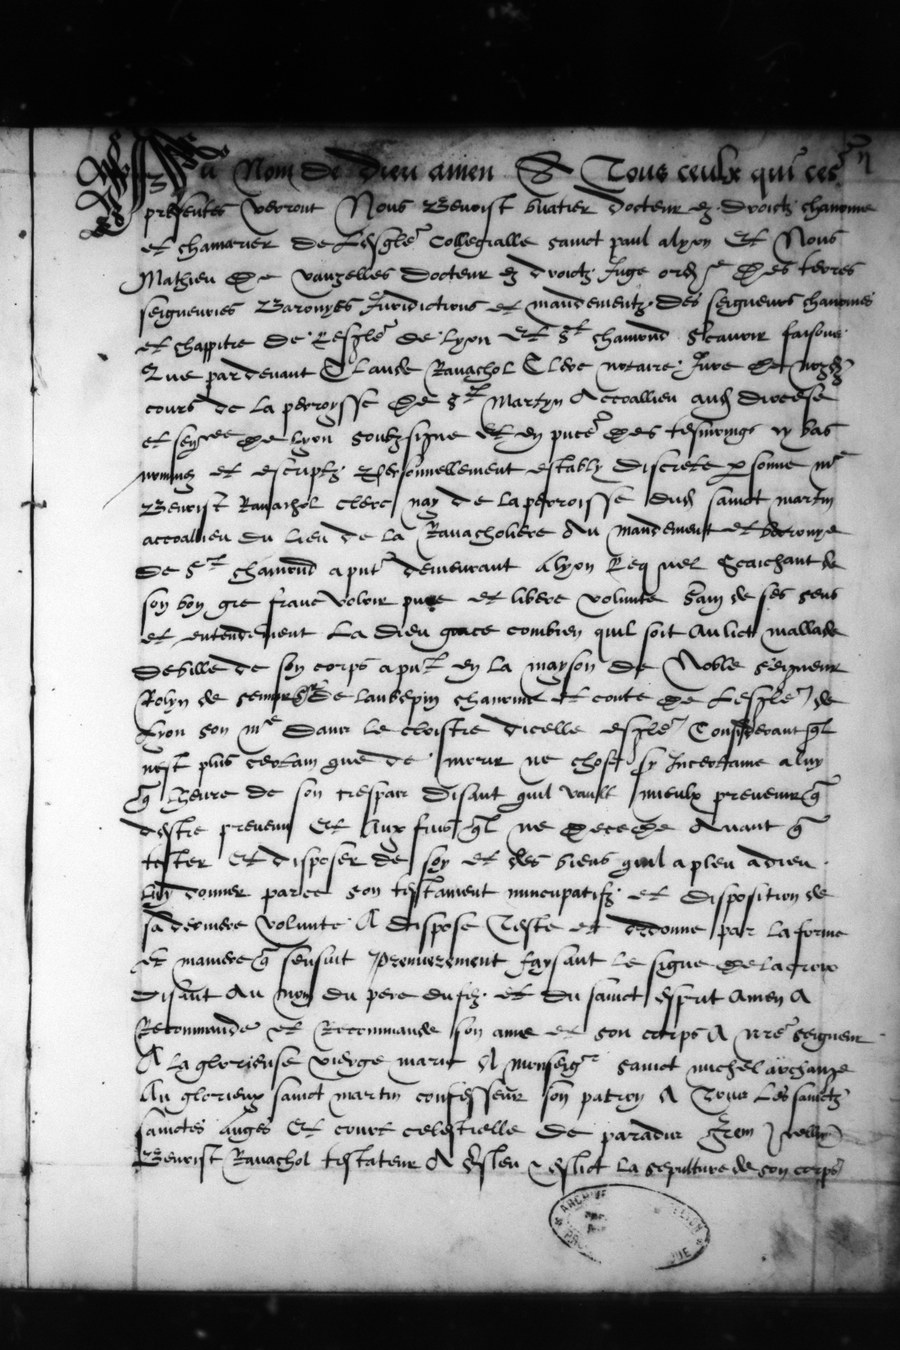 Au Nom de Dieu amen Et Tous ceulx qui ces
presentes verront Nous Benoist buatier docteur es droictz chanoine
et chamarier de lesglē collegialle sainct paul a lyon Et Nous
Mathieu de vauzelles docteur es droictz Juge ordrē des terres
seigneuries Baronyes Juridictions et mandementz des seigneurs chanoines
et chappitre de lesglē de lyon et st chamond scavoir faisons
Que pardevant Claude Ravachol Clerc notaire Jure de nosd
cours de la perroysse de st Martyn Accoallieu aud diocese
et senecee de lyon soubzsigne et en pnce des tesmoings cy bas
nommes et escriptz personnellement estably discrete psonne me
Benoist Ravachol clerc nay de la perroisse dud sainct martin
accoallieu du lieu de la Ravacholiere du mandement et barronye
de st chamond a pnt demeurant a lyon leq uel scaichant de
son bon gre franc voloir pure et libere volunte sain de ses sens
et entendement la dieu grace combien quil soit au lict mallade
debille de son corps a pnt en la mayson de Noble seigneur
Rolyn de semur de laubepin chanoine et conte de lesglē de
lyon son me dans le cloistre dicelle esglē Considerant ql
nest plus certain que de morir ne chose sy Incertaine a luy
q lheure de son trespas disant quil vault mieulx prevenir q
destre prevenu Et Aux fins ql ne decede Avant q
tester et disposer de soy et des biens quil a pleu a dieu
luy donner par ce son testament nuncupatifz et disposition de
sa derniere volunte A dispose Teste et ordonne par la forme
et maniere q sensuit premierement faysant le signe de la croix
disant Au nom du pere du filz et du sainct esprit Amen A
Recommande et Recommande son ame et son corps A nrē seigneur
A la glorieuse vierge marie A monseigr sainct michel archange
Au glorieux sainct martin confesseur son patron A Tous les sainctz
sainctes anges et court celestielle de paradis Item icelluy
Benoist Ravachol testateur A esleu et eslict la sepulture de son corps